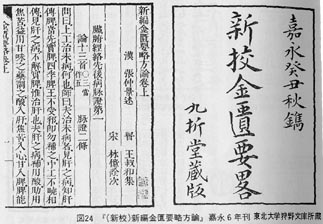 嘉永癸丑秋鐫
新校金匱要畧
九折堂藏版
新編金匱要略方論卷上
漢 張仲景述
晉 王叔和集
宋 林億詮次
臟腑經絡先後病脉證第一
論十三首 脉證二條
問曰上工治未病何也師曰夫治未病者見肝之病知肝
傳脾當先實脾四季脾王不受邪即勿補之中工不曉相
傳見肝之病不解實脾惟治肝也夫肝之病補用酸助用
焦苦益用甘味之藥調之酸入肝焦苦入心甘入脾脾能
図24 『(新校)新編金匱要略方論』嘉永6年刊 東北大学狩野文庫所蔵